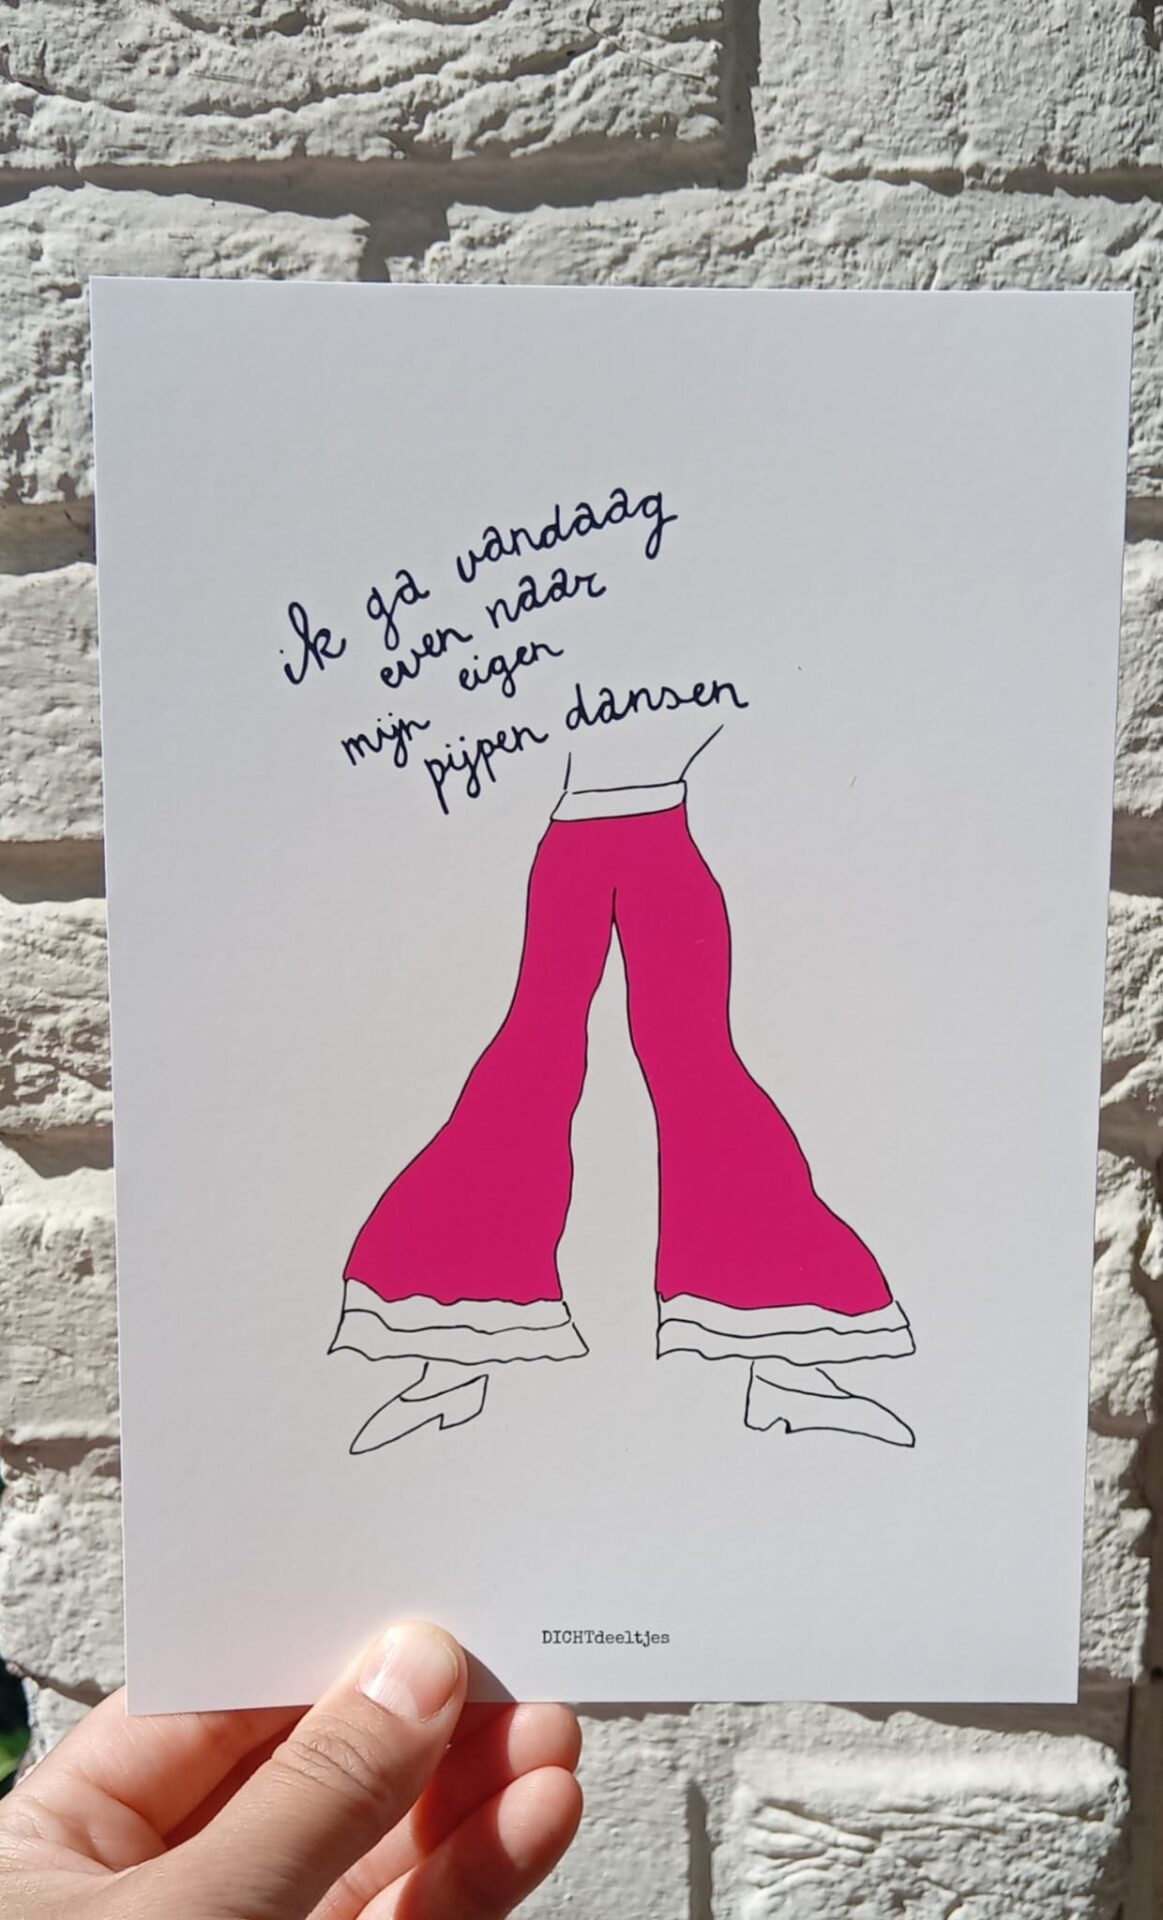 ik ga vandaag
even naar
mijn eigen
pijpen dansen
DICHTdeeltjes